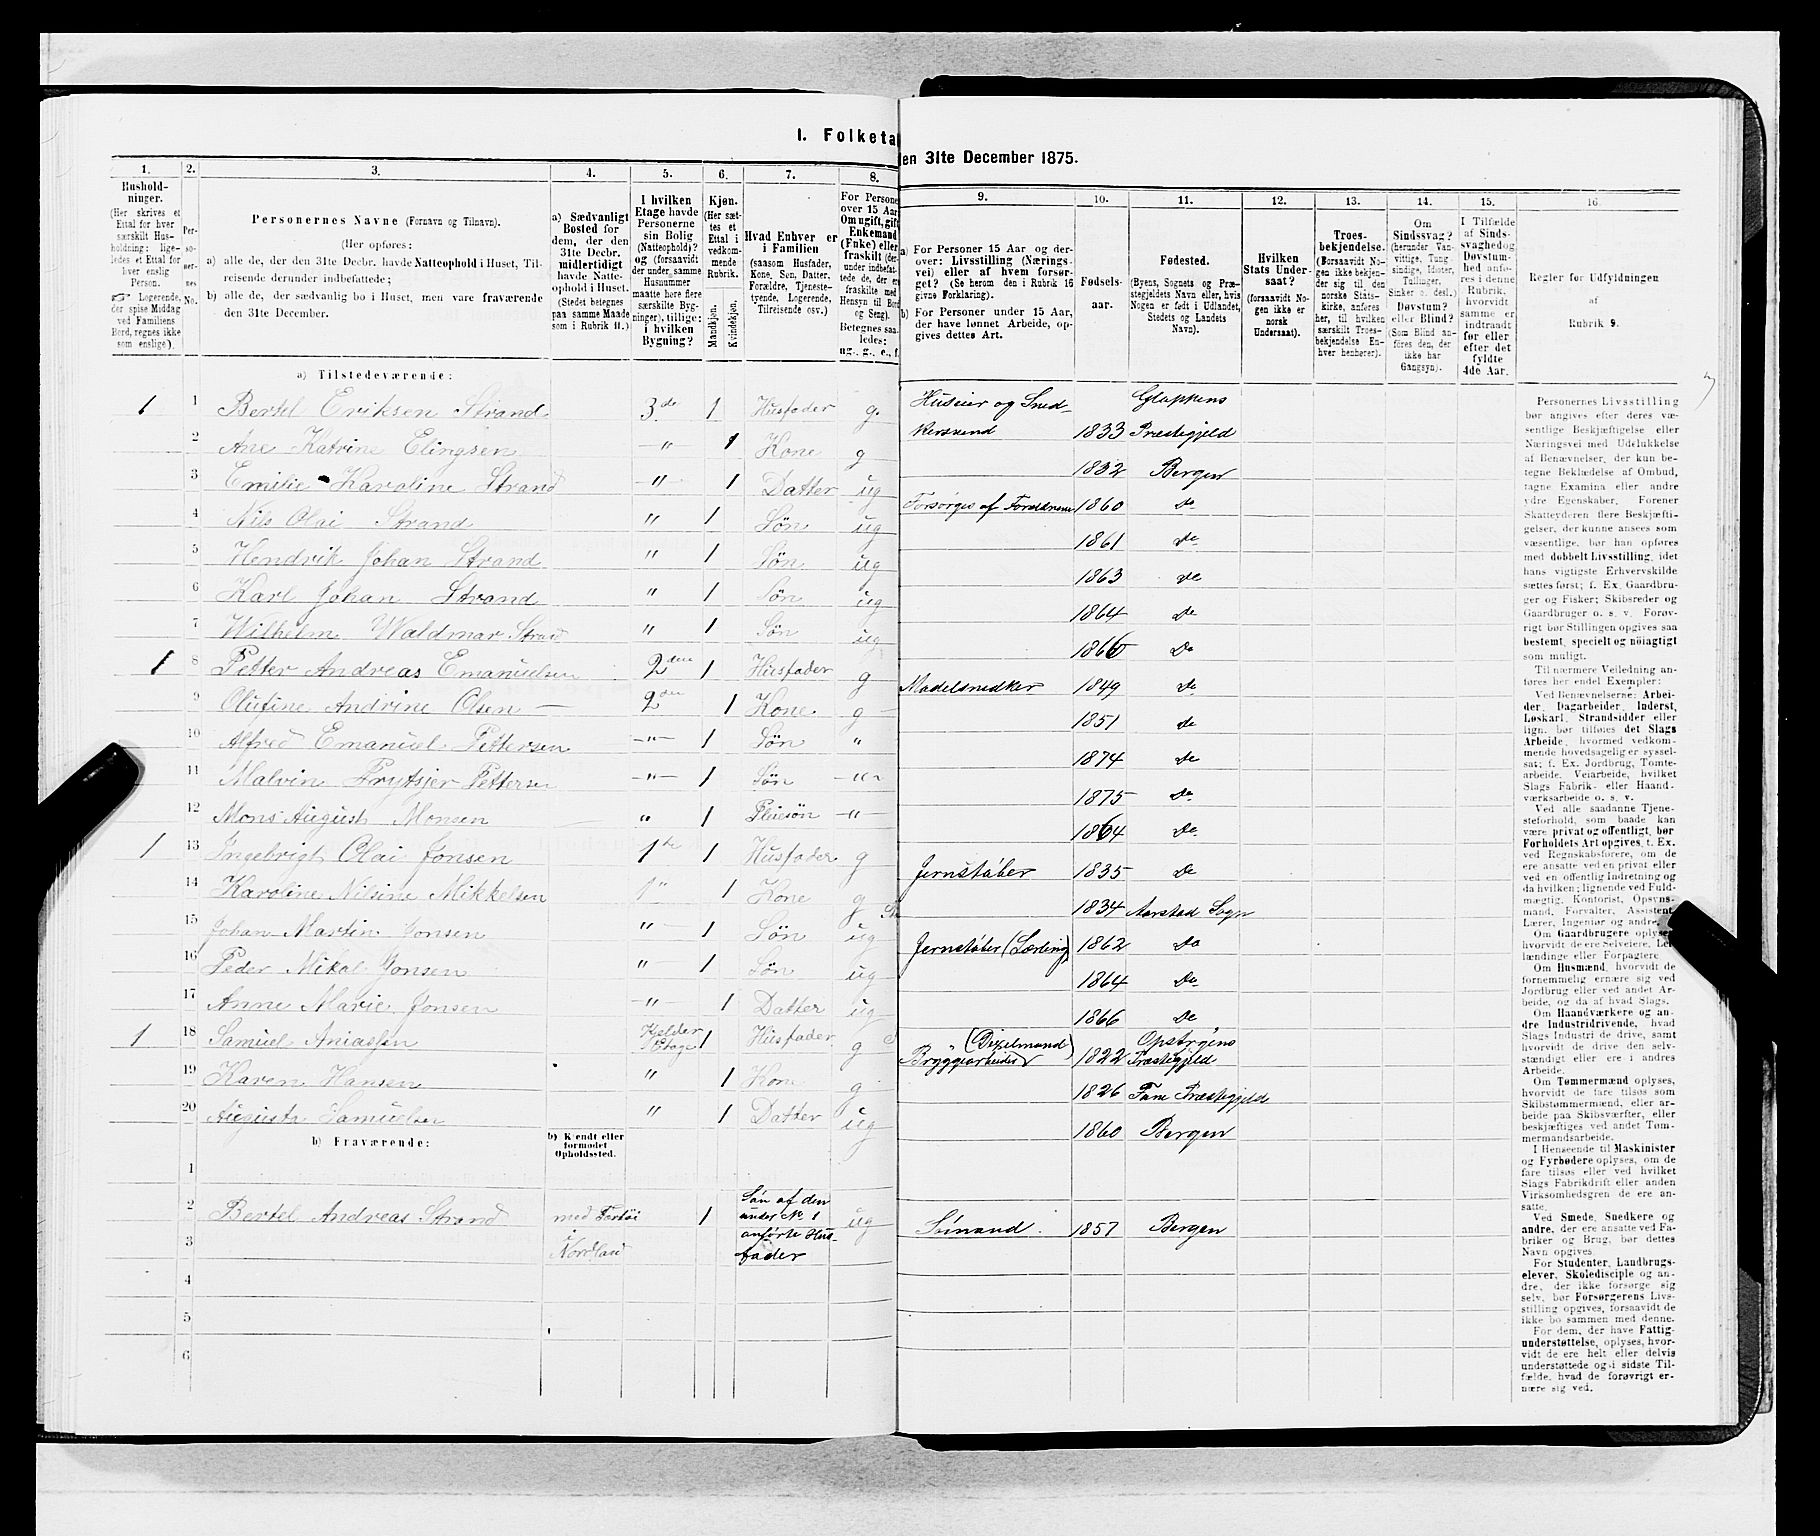 I. Folketa
en 31te December 1875.
1.
2.
3.
4.
5.
6.
7.
8.
9.
10.
11.
12.
13.
14.
15.
16.
Hushold-
ninger.
(Her skrives et
Ettal for hver
særskilt Hus-
holdning; lige-
ledes et Ettal for
hver enslig
Person.
Logerende,
der spise Middag
ved Familiens
Bord, regnes ikke
som enslige).
Per-
so-
ner-
nes
No.
Personernes Navne (Fornavn og Tilnavn).
(Her opføres:
a) alle de, der den 31te Decbr. havde Natteophold i Huset, Til-
reisende derunder indbefattede;
b) alle de, der sædvanlig bo i Huset, men vare fraværende
den 31te December.
a) Sædvanligt
Bosted for
dem, der den
31te Decbr.
midlertidigt
havde Natte-
ophold i Huset.
(Stedet betegnes
paa samme Maade
som i Rubrik 11.)
I hvilken
Etage havde
Personerne
sin Bolig
(Natteophold)?
og (forsaavidt
der under samme
Husnummer
maatte høre flere
særskilte Byg-
ninger), tillige:
i hvilken
Bygning?
Kjøn.
(Her sæt-
tes et
Ettal i
vedkom-
mende
Rubrik.
Mandkjøn.
Kvindekjøn.
Hvad Enhver er
i Familien
(saasom Husfader,
Kone, Søn, Datter,
Forældre, Tjeneste-
tyende, Logerende,
Tilreisende osv.)
For Persone
over 15 Aar
Om ugift, gift
Enkemand
(Enke) eller
fraskilt (der-
under indbefat-
tede de, der er
fraskilte med
Hensyn til Bord
og Seng).
Betegnes saa-
ledes:
ug., g., e., f.
a) For Personer 15 Aar og der-
over: Livsstilling (Nærings-
vei) eller af hvem forsør-
get? (Se herom den i Rubrik 16
givne Forklaring).
b) For Personer under 15 Aar,
der have lønnet Arbeide, op-
gives dettes Art.
Fødsels-
aar.
Fødested.
(Byens, Sognets og Præ-
stegjeldets Navn eller, hvis
Nogen er født i Udlandet,
Stedets og Landets
Navn).
Hvilken
Stats Under-
saat?
(forsaavidt No-
gen ikke er
norsk
Undersaat).
Troes-
bekjendelse.
(Forsaavidt No-
gen ikke bekjen-
der sig til den
norske Stats-
kirke, anføres
her, til hvilken
særskilt Troes-
bekjendelse En-
hver henhører).
Om
Sindssvag?
(herunder Van-
vittige, Tung-
sindige, Idioter,
Tullinger,
Sinker o. desl.)
Døvstum?
eller Blind?
(Som Blind an-
føres den, der
ikke har
Gangsyn).
I Tilfælde
af Sinds-
svaghedog
Døvstum-
hed anfø-
res i denne
Rubrik,
hvorvidt
samme er
indtraadt
før eller
efter det
fyldte
4de Aar.
Regler for Udfyldningen
af
Rubrik 9.
a) Tilstedeværende:
1 1 Bertel Eriksen Strand 3de 1 Husfader g. Huseier og Sned- Gloppens
kersvend 1833 Præstegjeld
2 Ane Katrine Elingsen — " 1 Kone g 1832 Bergen
3 Emilie Karoline Strand " 1 Datter ug Forsørges af Forældrene 1860 do
4 Nils Olai Strand " 1 Søn ug 1861 do
5 Hendrik Johan Strand " 1 Søn ug 1863 do
6 Karl Johan Strand " 1 Søn ug 1864 do
7 Wilhelm Waldmar Strand " 1 Søn ug 1866 Do
1 8 Petter Andreas Emanuelsen 2den 1 Husfader g Modelsnedker 1849 do
9 Olufine Andrine Olsen — 2den 1 Kone g 1851 do
10 Alfred Emanuel Pettersen — " — 1 Søn " 1874 do
11 Malvin Frytsjer Pettersen — " — 1 Søn — " — 1875 Do
12 Mons August Monsen " 1 Pleiesøn — " — 1864 Do
1 13 Ingebrigt Olai Jonsen 1ste 1 Husfader g Jernstøber 1835 Do
14 Karoline Nilsine Mikkelsen 1 " 1 Kone g 1834 Aarstad Sogn
15 Johan Martin Jonsen " 1 Søn ug Jernstøber (Lærling) 1862 Do
16 Peder Mikal Jonsen " 1 Søn ug 1864 Do
17 Anne Marie Jonsen — " — 1 Datter ug 1866 Do
1 18 Samuel Aniassen Kjelder Etage 1 Husfader g Bryggearbeider 1822 Præstegjeld
19 Karen Hansen " 1 Kone g 1826 Fane Præstegjeld
20 Augusta Samuelsen " 1 Datter ug 1860 Bergen
b) Fraværende:
b) Kjendt eller
formodet
Opholdssted.
1
2 Bertel Andreas Strand med Fartøi 1 Søn af den
under No. 1
anførte Hus-
fader ug Sømand. 1857 Bergen
3 Nordland
4
5
6
Personernes Livsstilling
bør angives efter deres væ-
sentlige Beskjæftigelse eller
Næringsvei med Udelukkelse
af Benævnelser, der kun be-
tegne Beklædelse af Ombud,
tagne Examina eller andre
ydre Egenskaber. Forener
Skatteyderen flere Beskjæfti-
gelser, der kunne ansees som
væsentlige, bør han opføres
med dobbelt Livsstilling, idet
hans vigtigste Erhvervskilde
sættes først; f. Ex. Gaardbru-
ger og Fisker; Skibsreder og
Gaardbruger o. s. v. Forøv-
rigt bør Stillingen opgives saa
bestemt, specielt og nöiagtigt
som muligt.
Til nærmere Veiledning an-
føres her endel Exempler:
Ved Benævnelserne: Arbei-
der, Dagarbeider, Inderst,
Løskarl, Strandsidder eller
lign. bør tilføies det Slags
Arbeide, hvormed vedkom-
mende hovedsagelig er syssel-
sat; f. Ex. Jordbrug, Tomte-
arbeide, Veiarbeide, hvilket
Slags Fabrik- eller Haand-
værksarbeide o. s. v.
Ved alle saadanne Tjene-
steforhold, som baade kan
være privat og offentligt, bør
Forholdets Art opgives, f. Ex.
ved Regnskabsførere, om de
ere ansatte ved en privat eller
ved en offentlig Indretning og
da hvilken; lignende ved Fuld-
mægtig, Kontorist, Opsyns-
mand, Forvalter, Assistent,
Lærer, Ingeniør og andre.
Om Gaardbrugere oplyses,
hvorvidt de ere Selveiere, Lei-
lændinge eller Forpagtere
Om Husmænd, hvorvidt de
fornemmelig ernære sig ved
Jordbrug eller ved andet Ar-
beide, og da af hvad Slags.
Om Haandværkere og an-
dre Industridrivende, hvad
Slags Industri de drive, samt
hvorvidt de drive den selv-
stændigt eller ere i andres
Arbeide.
Om Tømmermænd oplyses,
hvorvidt de fare tilsøs som
Skibstømmermænd, eller ar-
beide paa Skibsværfter, eller
beskjæftiges ved andet Tøm-
mermandsarbeide.
I Henseende til Maskinister
og Fyrbødere oplyses, om de
fare tilsøs eller ved hvilket
Slags Fabrikdrift eller anden
Virksomhedsgren de ere an-
satte.
Ved Smede, Snedkere og
andre, der ere ansatte ved Fa-
briker og Brug, bør dettes
Navn opgives.
For Studenter, Landbrugs-
elever, Skoledisciple og an-
dre, der ikke forsørge sig
selv, bør Forsørgerens Livs-
stilling opgives, forsaavidt de
ikke bo sammen med denne.
For dem, der have Fattig-
understøttelse, oplyses, hvor-
vidt de ere helt eller delvis
understøttede og i sidste Til-
fælde, hvad de forøvrigt er-
nære sig ved.